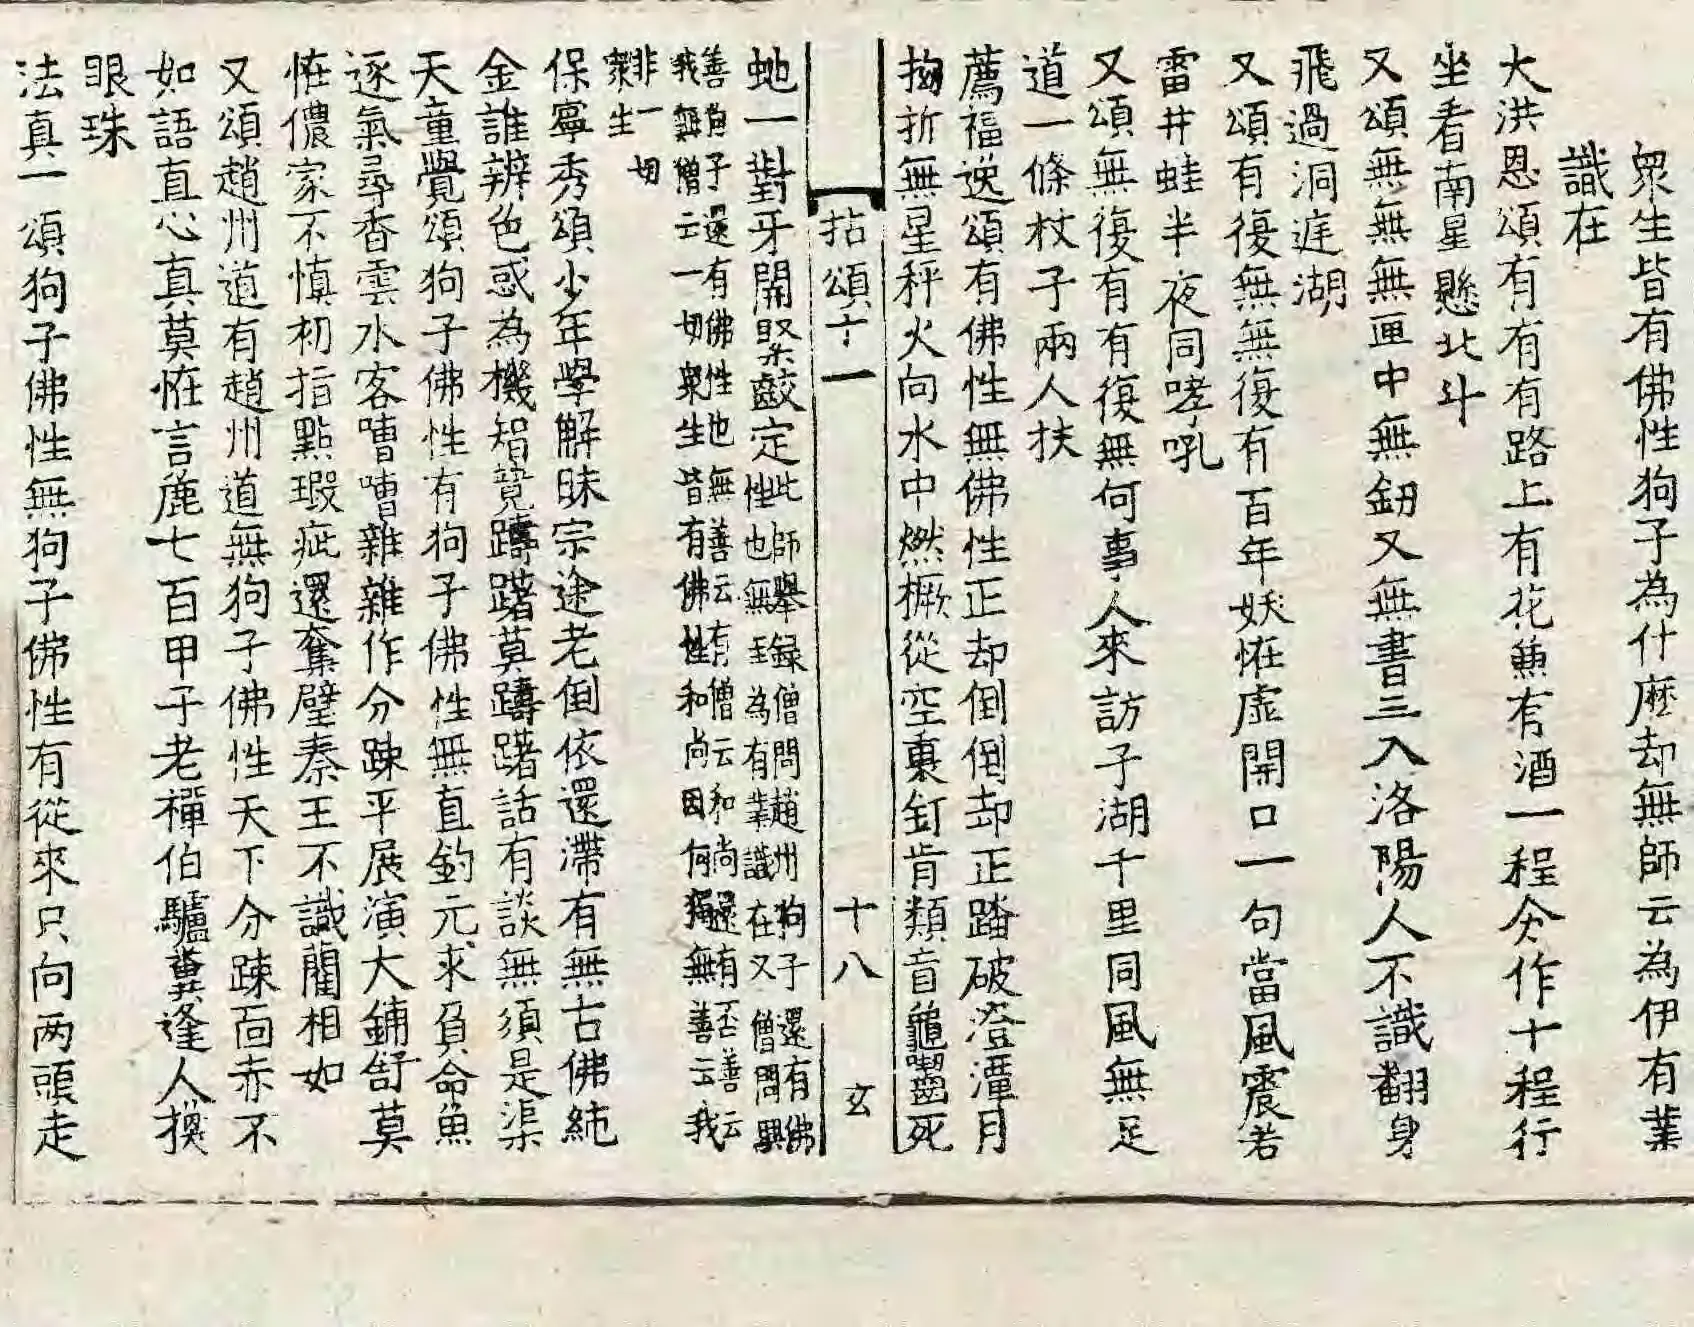 眾生皆有佛性狗子為什麼却無師云為伊有業
識在
大洪恩頌有有有路上有花兼有酒一程分作十程行
坐看南星懸北斗
又頌無無無匣中無釼又無書三入洛陽人不識翻身
飛過洞庭湖
又頌有復無無復有百年妖恠虛開口一句當風震若
雷井蛙半夜同哮吼
又頌無復有有復無何事人來訪子湖千里同風無足
道一條杖子兩人扶
薦福逸頌有佛性無佛性正却倒倒却正踏破澄潭月
拗折無星秤火向水中燃橛從空裏釘肯類盲龜嚙死
拈頌十一 十八 玄
虵一對牙開堅齩定
此師舉録僧問趙州狗子還有佛
性也無至為有業識在又僧問興
善狗子還有佛性也無善云有僧云和尚還有否善云
我無僧云一切眾生皆有佛性和尚因何獨無善云我
非一切
衆生
保寧秀頌少年學解昧宗途老倒依還滯有無古佛純
金誰辨色惑為機智覓躊躇莫躊躇話有談無須是渠
天童覺頌狗子佛性有狗子佛性無直釣元求負命魚
逐氣尋香雲水客嘈嘈雜雜作分踈平展演大鋪舒莫
恠儂家不慎初指點瑕疵還奪璧秦王不識藺相如
又頌趙州道有趙州道無狗子佛性天下分踈面赤不
如語直心真莫恠言麁七百甲子老禪伯驢糞逢人換
眼珠
法真一頌狗子佛性無狗子佛性有從來只向两頭走